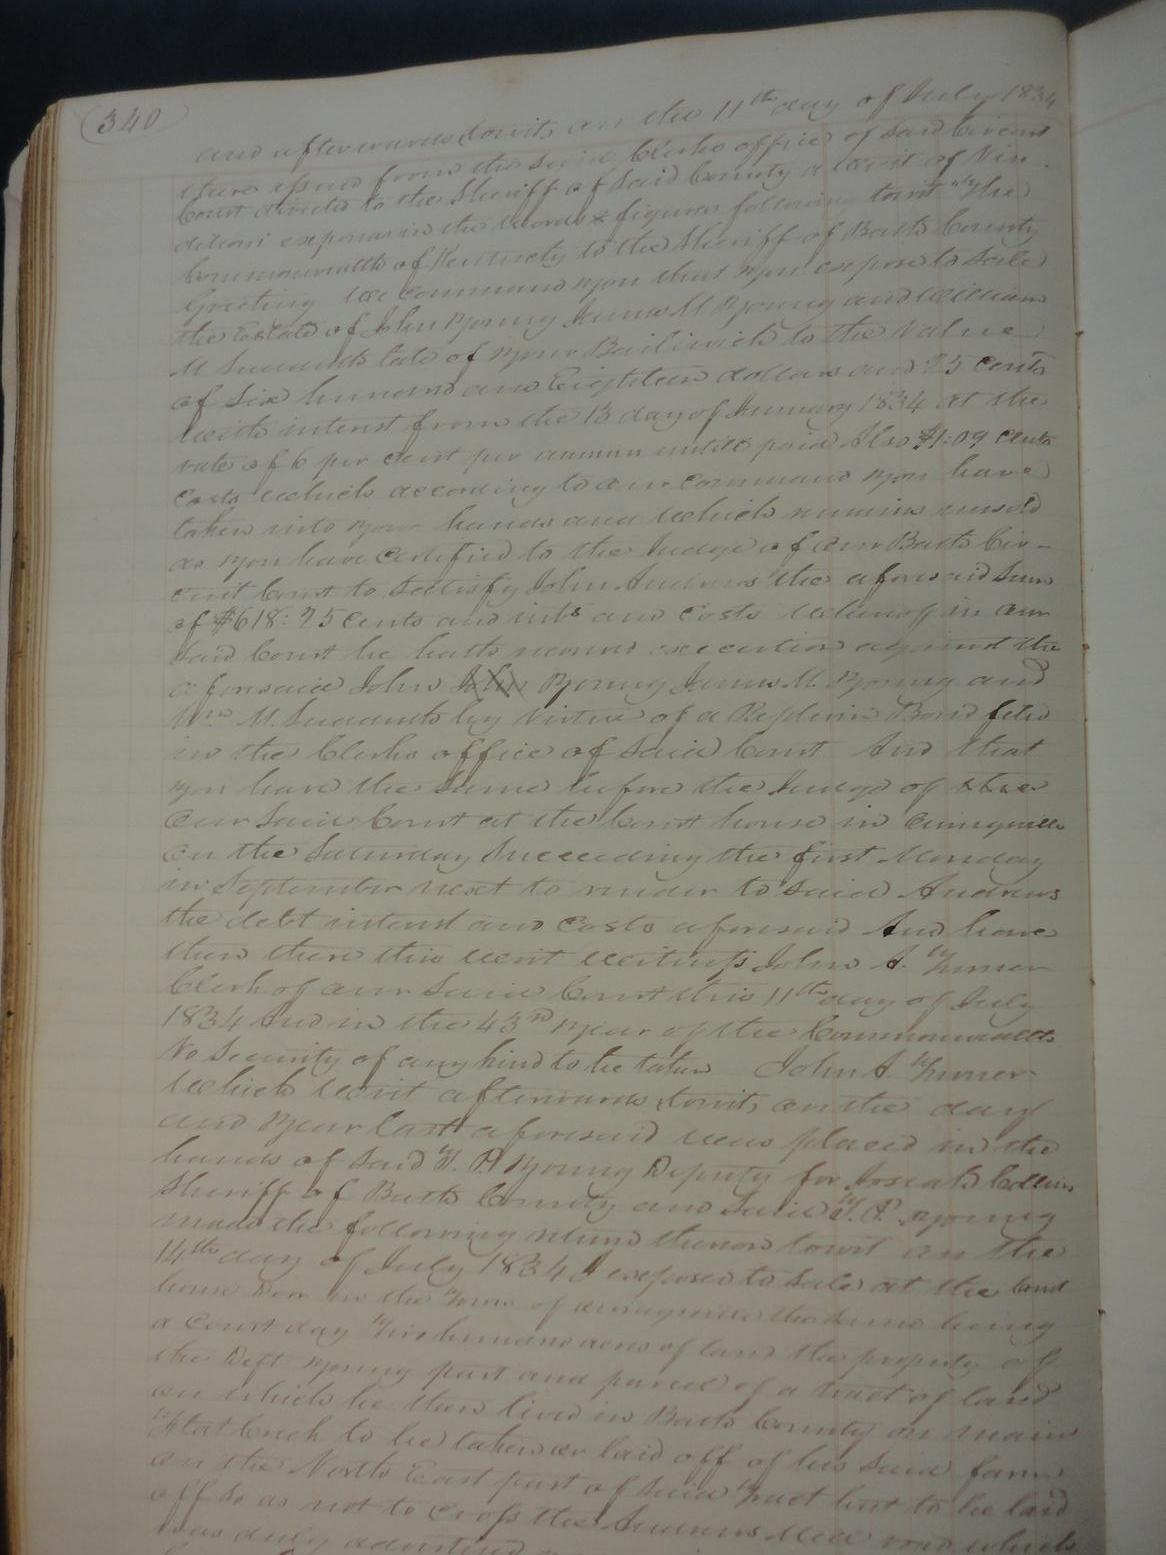 340
and afterwards towit, on the 11th day of July 1834
there issued from the said Clerks office of said Circuit
Court directed to the Sheriff of said County a writ of Ven
ditioni exponas in the words & figures following towit "The
Commonwealth of Kentucky to the Sheriff of Bath County
Greeting We command you that you expose to Sale
the Estate of John Young James M Young and William
M Sudduth late of your Bailiwick to the Value
of Six hundred and Eighteen dollars and 25 cents
with interest from the 13 day of January 1834 at the
rate of 6 per cent per annum untill paid Also $1:09 Cents
Costs which according to our command you have
taken into your hands and which remains unsold
as you have certified to the Judge of our Bath Cir-
cuit Court to Satisfy John Andrews the aforesaid Sum
of $618:25 Cents and ints and Costs whereof in our
said Court he hath recovd execution against the
aforesaid John John Young James M. Young and
Wm M. Sudduth by virtue of a Replevin Bond filed
in the Clerks office of said Court And that
you have the same before the Judge of
our said Court at the Court house in Owingsville
on the Saturday Succeeding the first Monday
in September next to render to said Andrews
the debt interest and Costs aforesaid And have
then there this writ witness John A. Turner
Clerk of our said Court this 11th day of July
1834 And in the 43rd year of the Commonwealth
No Security of any kind to be taken John A. Turner
Which writ afterwards towit, on the day
and year last aforesaid was placed in the
hands of said T. P. Young Deputy for Collins
Sheriff of Bath County and said T. P. Young
made the following return thereon towit on the
14th day of July 1834 I exposed to sale at the Court
house Door in the Town of Owingsville the same being
a Court day Two hundred acres of land the property of
the Deft Young part and parcel of a tract of land
on which he then lived in Bath County on main
Flat Creek to be taken or laid off of his said farm
on the North East part of said Tract but to be laid
off so as not to cross the Andrews Mill road which
was duly advertised